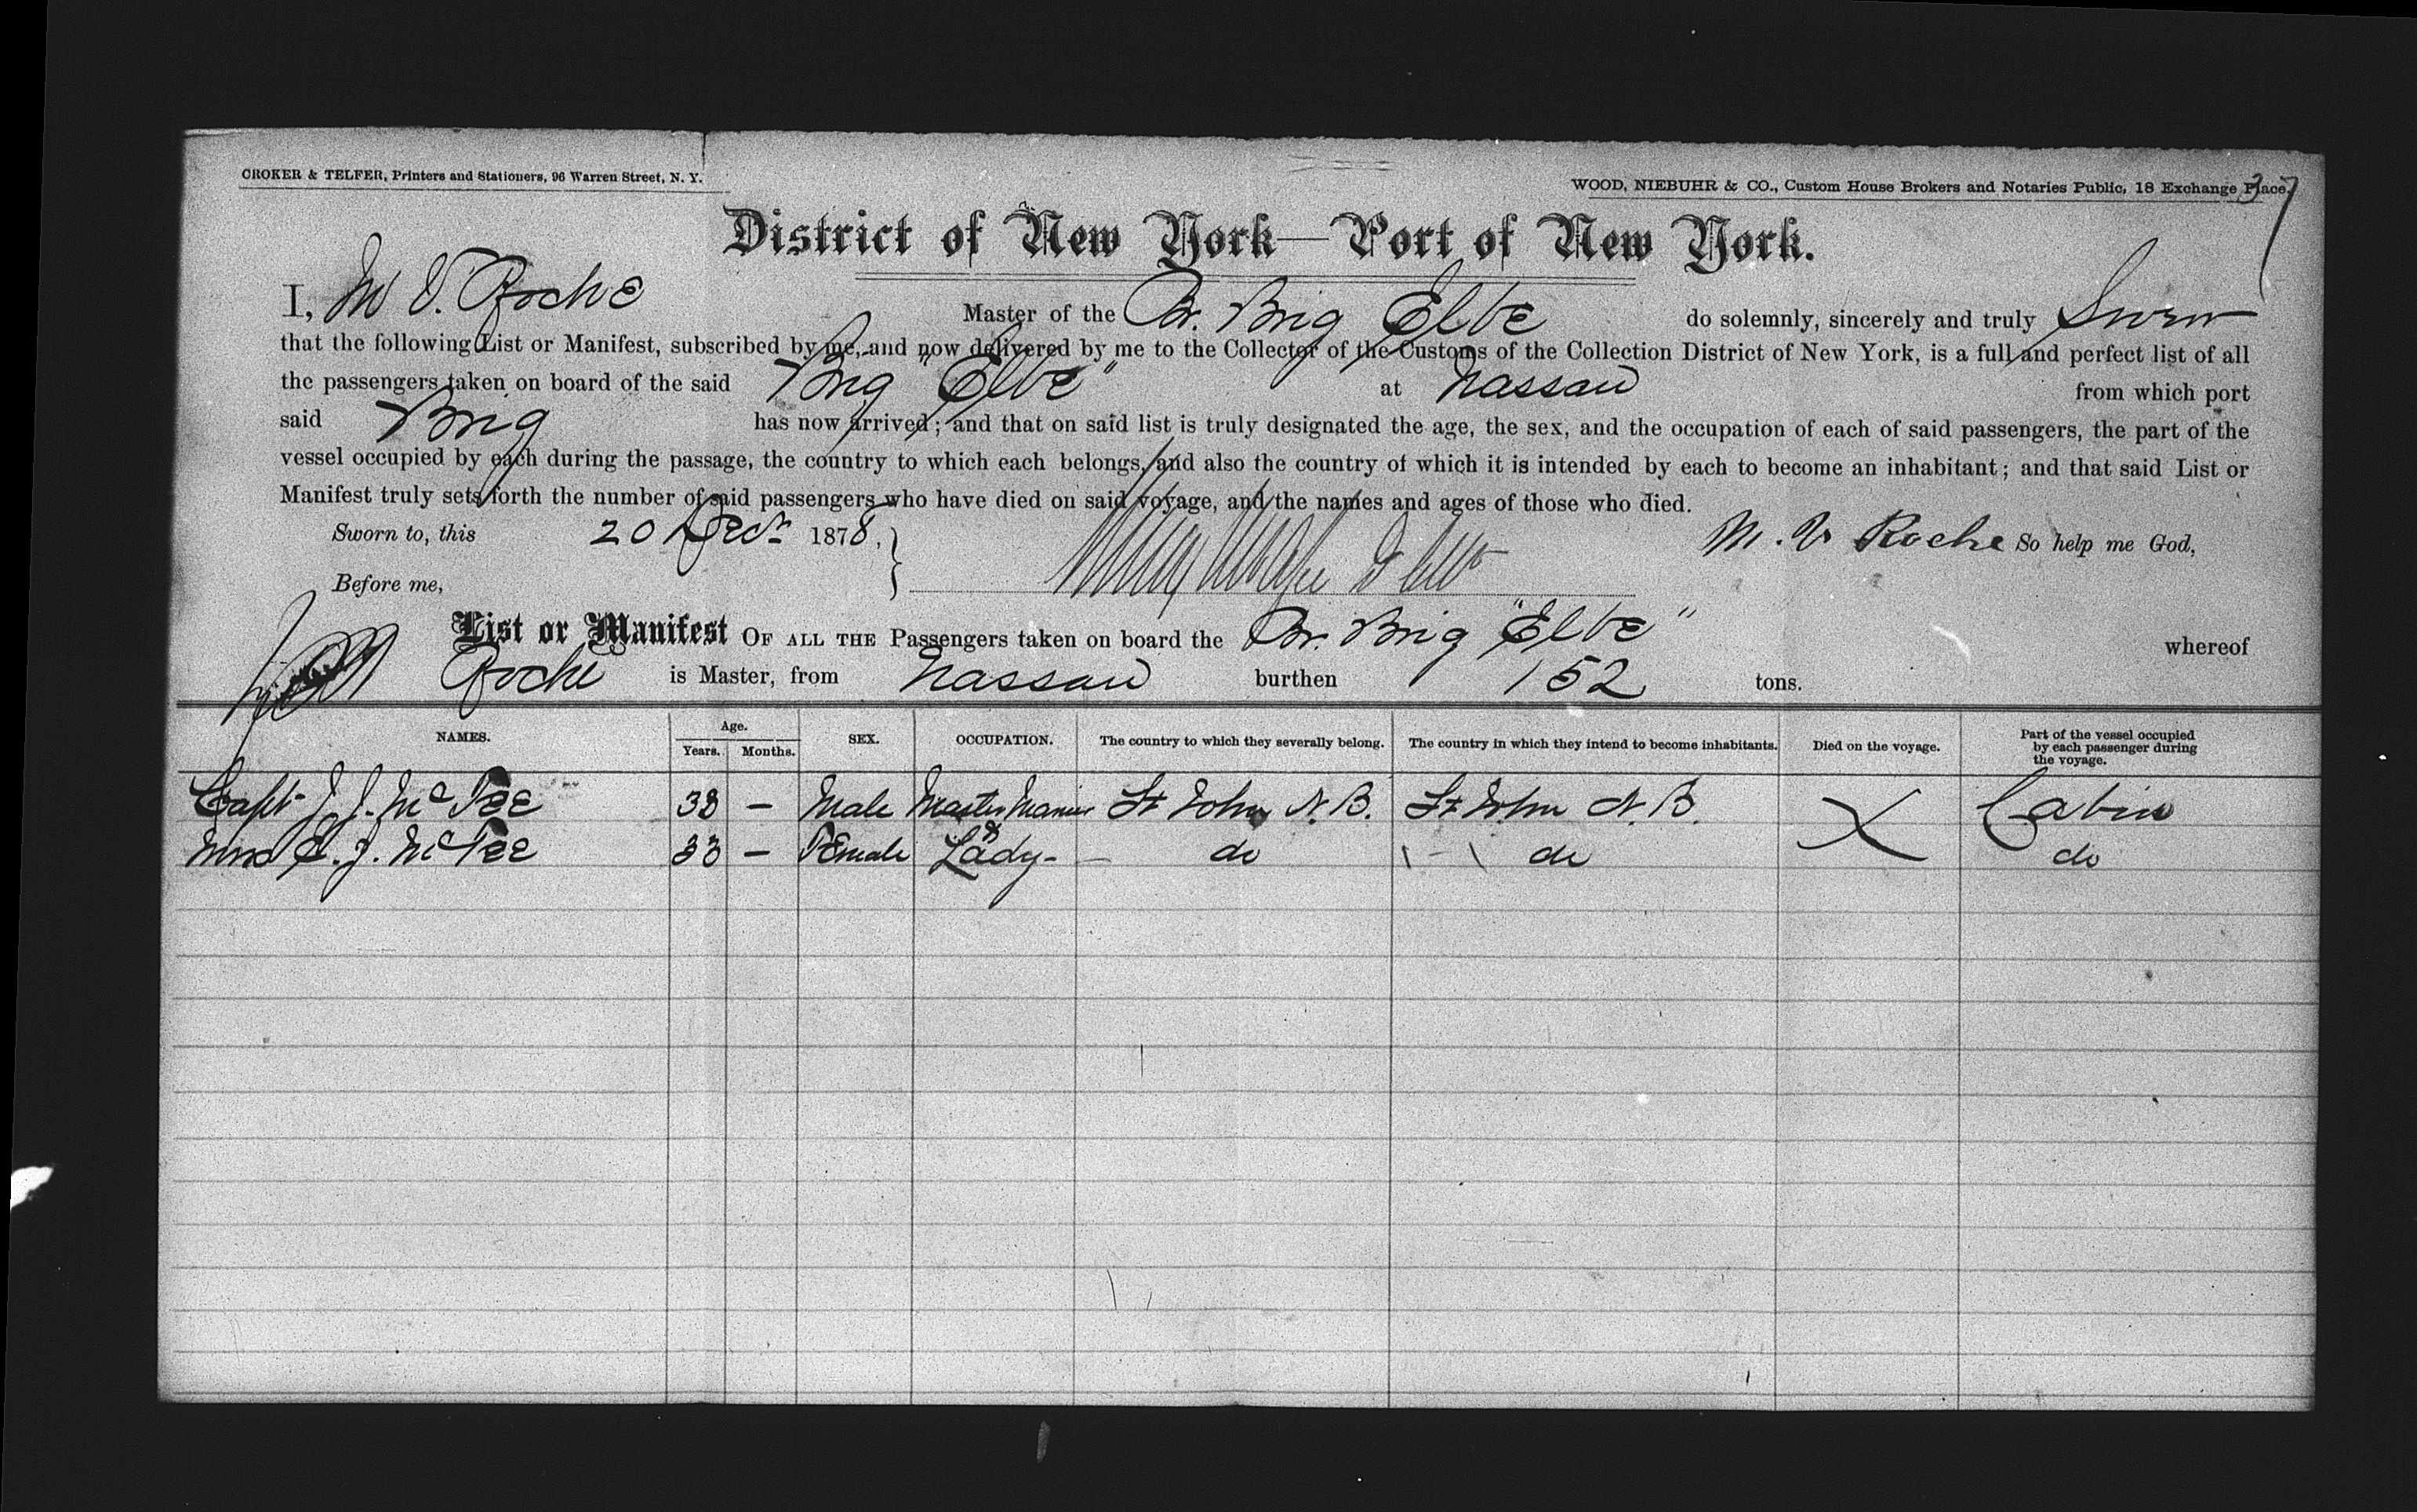 CROKER & TELFER, Printers and Stationers, 96 Warren Street, N. Y.
WOOD, NIEBUHR & CO., Custom House Brokers and Notaries Public, 18 Exchange Place.
37
District of New York—Port of New York.
I, M V. Roche Master of the Br. Brig Elbe do solemnly, sincerely and truly Swear
that the following List or Manifest, subscribed by me, and now delivered by me to the Collector of the Customs of the Collection District of New York, is a full and perfect list of all
the passengers taken on board of the said Brig "Elbe" at Nassau from which port
said Brig has now arrived; and that on said list is truly designated the age, the sex, and the occupation of each of said passengers, the part of the
vessel occupied by each during the passage, the country to which each belongs, and also the country of which it is intended by each to become an inhabitant; and that said List or
Manifest truly sets forth the number of said passengers who have died on said voyage, and the names and ages of those who died.
Sworn to, this 20 Decr 1878, M. V Roche So help me God,
Before me,
List or Manifest OF ALL THE Passengers taken on board the Br. Brig "Elbe" whereof
Roche is Master, from Nassau burthen 152 tons.
NAMES. Age. Years. Months. SEX. OCCUPATION. The country to which they severally belong. The country in which they intend to become inhabitants. Died on the voyage. Part of the vessel occupied by each passenger during the voyage.
Capt J. J. McFee 38 — Male Master Mariner St John N.B. St John N.B. Cabin
Mrs E. J. McFee 33 — Female Lady - do do do